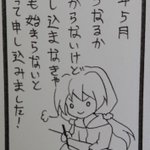 年5月
うなるか
からないけど
し込まなきゃ
も始まらないと
って申し込みました!